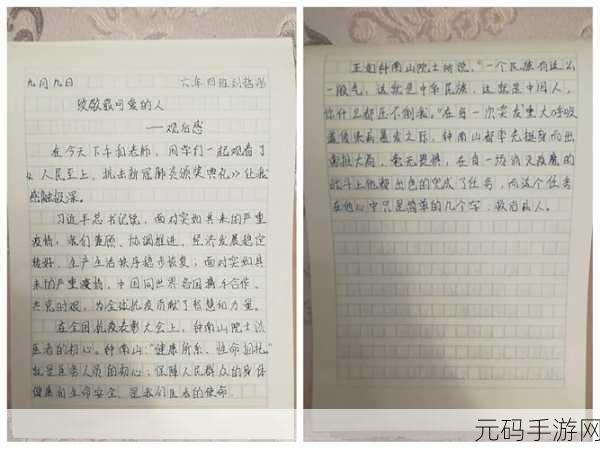 九月九日 六年四班刘哲彤
致敬最可爱的人
——观后感
在今天下午和老师、同学们一起观看了
《人民至上,抗击新冠肺炎颁奖典礼》让我
感触极深。
习近平总书记说,面对突如其来的严重
疫情,我们统筹、协调推进,经济发展稳定
转好,生产生活秩序稳步恢复;面对突如其
来的严重疫情,中国同世界各国携手合作、
共克时艰,为全球抗疫贡献了智慧和力量。
在全国抗疫表彰大会上,钟南山院士谈
医者的初心。钟南山:“健康所系、性命相托”
就是医务人员的初心;保障人民群众的身体
健康和生命安全,是我们医者的使命。
正如钟南山院士所说,“一个民族有这么
一股气,这就是中华民族,这就是中国人,
你什么都压不倒我。”在每一次突发重大呼吸
道传染病暴发之际,钟南山都率先挺身而出
毫无畏惧,在每一场消灭疫魔的
战斗上他都出色的完成了任务,而这个任务
在他心中只是简单的几个字,救治病人。
元码手游网